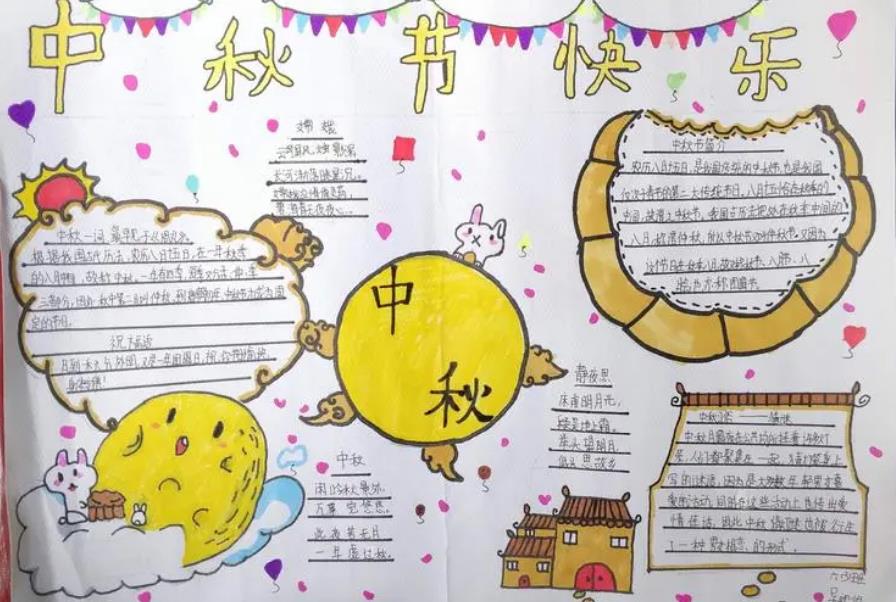 中秋节快乐
嫦娥
云母屏风烛影深
长河渐落晓星沉
嫦娥应悔偷灵药
碧海青天夜夜心
中秋节简介
农历八月十五日,是我国传统的中秋节,也是我国
仅次于春节的第二大传统节日,八月十五恰在秋季的
中间,故谓之中秋节。我国古历法把处在秋季中间的
八月,称谓仲秋,所以中秋节又叫仲秋节。又因为
这个节日在秋季八月,故又称秋节、八月节、八
月
也亦称团圆节。
中秋一词,最早见于
根据我国古代历法,农历八月十五日,在一年秋季
的八月中旬,故称中秋。一年有四季,
三部分,因此秋中第二月叫仲秋,中秋节才成为固
定的节日。
祝福语
月到 分外圆,又是一年团圆日,祝你
中
秋
静夜思
床前明月光,
疑是地上霜。
举头望明月,
低头思故乡
中秋
闲吟秋景外,
万事 悠悠。
此夜若无月
一年虚过秋。
中秋习俗——猜谜
中秋月圆夜在公共场所挂着许多灯
笼,人们都聚集在一起,猜灯笼身上
写的谜语,因为是大多数年轻男女喜
爱的活动,同时在这些活动上也传出爱
情佳话,因此中秋猜谜也被衍生
了一种男女相恋的形式。
六 班